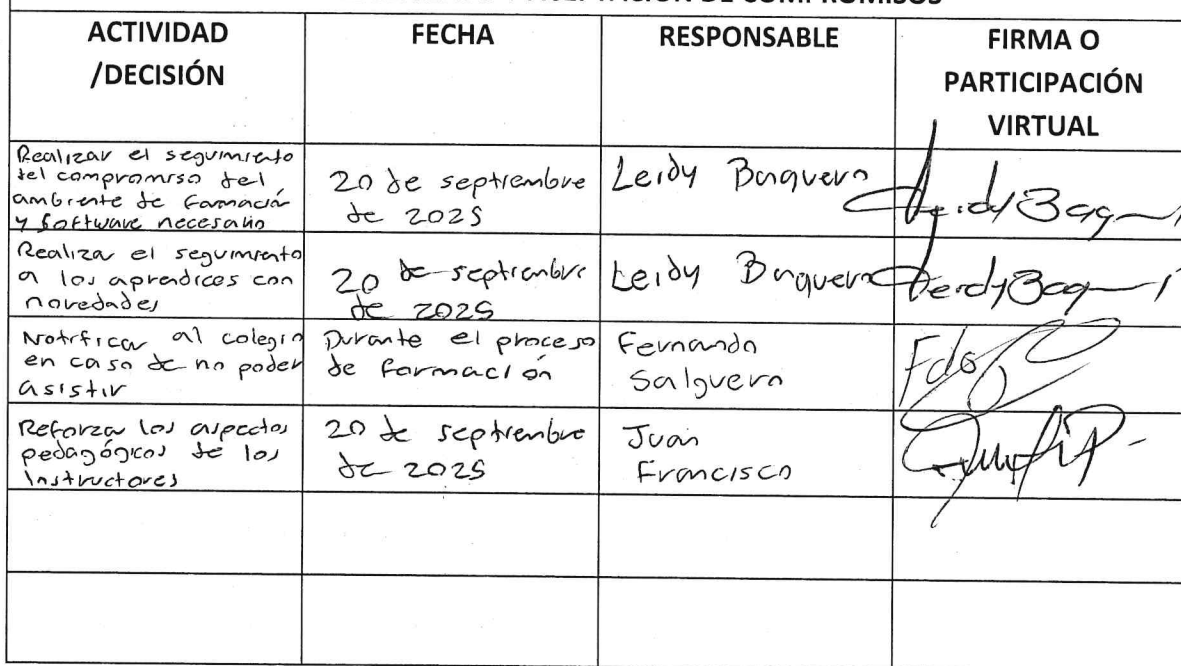 ACTIVIDAD
/DECISIÓN
FECHA
RESPONSABLE
FIRMA O
PARTICIPACIÓN
VIRTUAL
Realizar el seguimiento
del compromiso del
ambiente de formación
y software necesario
20 de septiembre
de 2025
Leidy Baquero
Leidy Baq
Realizar el seguimiento
a los aprendices con
novedades
20 de septiembre
de 2025
Leidy Baquero
Leidy Baq
Notificar al colegio
en caso de no poder
asistir
Durante el proceso
de formación
Fernando
Salguero
Fdo
Reforzar los aspectos
pedagógicos de los
Instructores
20 de septiembre
de 2025
Juan
Francisco